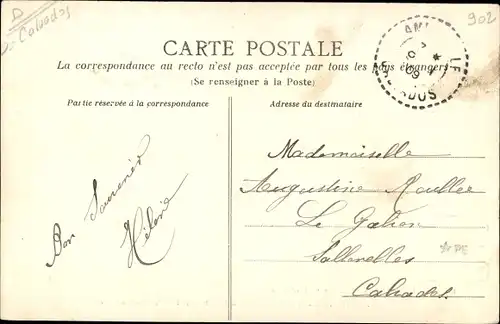 D
Calvados
902
CARTE POSTALE
La correspondance au recto n'est pas acceptée par tous les pays étrangers
(Se renseigner à la Poste)
Partie réservée à la correspondance
Adresse du destinataire
CALVADOS
09
Bon Souvenir
Hélène
Mademoiselle
Augustine
Le
Sallenelles
Calvados
PE